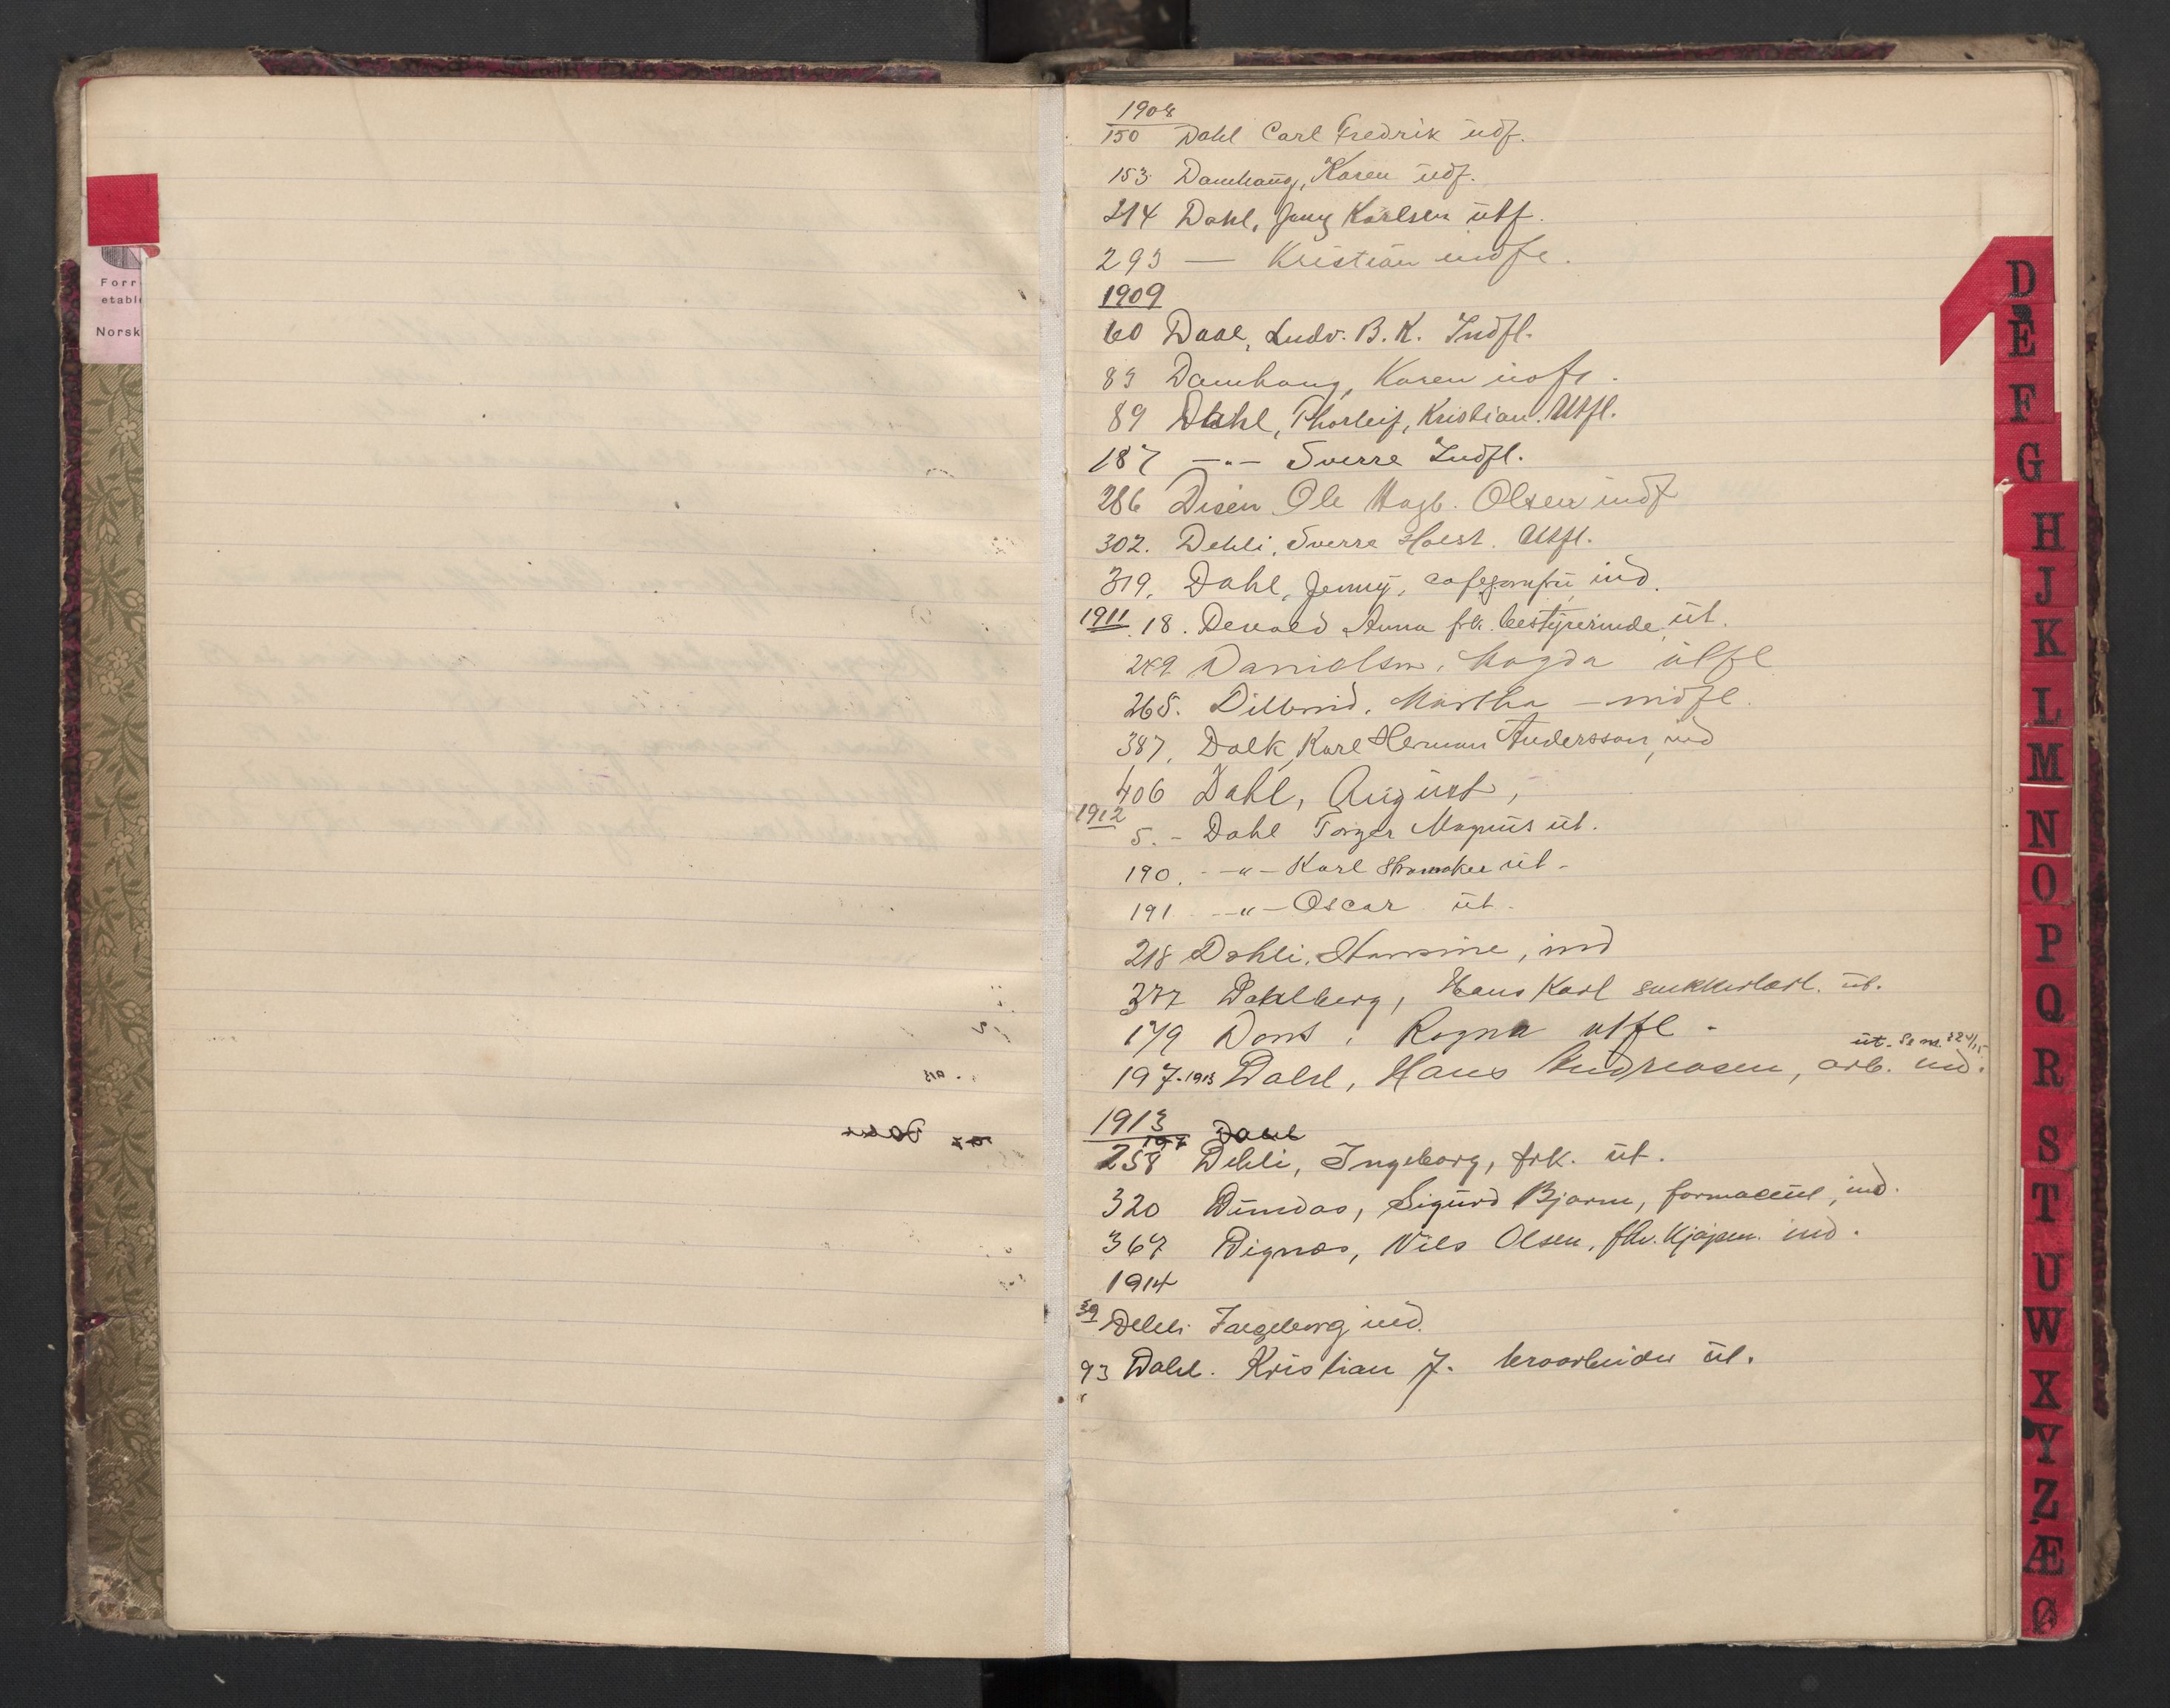 Forr
etabl
Norsk
1908
150 Dahl Carl Fredrik udf.
153 Damhaug, Karen udf.
214 Dahl, Jenny Karlsen utf.
293 — Kristian indfl.
1909
60 Daae, Ludv. B. K. Indfl.
83 Damhaug, Karen indfl.
89 Dahl, Thorleif, Kristian. Utfl.
187 —"— Sverre Indfl.
286 Disen Ole Hagb. Olsen indf
302. Dehli, Sverre Holst. Utfl.
319. Dahl, Jenny, cafejomfru ind.
1911 18. Devold Anna frk. bestyrerinde ut.
249 Danielsen, Magda utfl
265. Dillerud, Martha — indfl.
387. Dalk, Karl Herman Andersson, ind
406 Dahl, August,
1912
5. - Dahl Torger Magnus ut.
190. —"— Karl ut -
191 —"— Oscar ut.
218 Dehli, Hansine, ind
377 Dahlberg, Hans Karl ut.
179 Dons, Ragna utfl -
ut. Se nr. 224/15
197-1913 Dahl, Hans Andreasen, arb. ind.
1913
197 Dahl
258 Dehli, Ingeborg, frk. ut.
320 Dundas, Sigurd Bjarne, farmaceut, ind.
367 Dignæs, Nils Olsen, ind.
1914
39 Dehli Ingeborg ind.
93 Dahl. Kristian J. ut.
D
E
F
G
H
J
K
L
M
N
O
P
Q
R
S
T
U
W
X
Y
Z
Æ
Ø